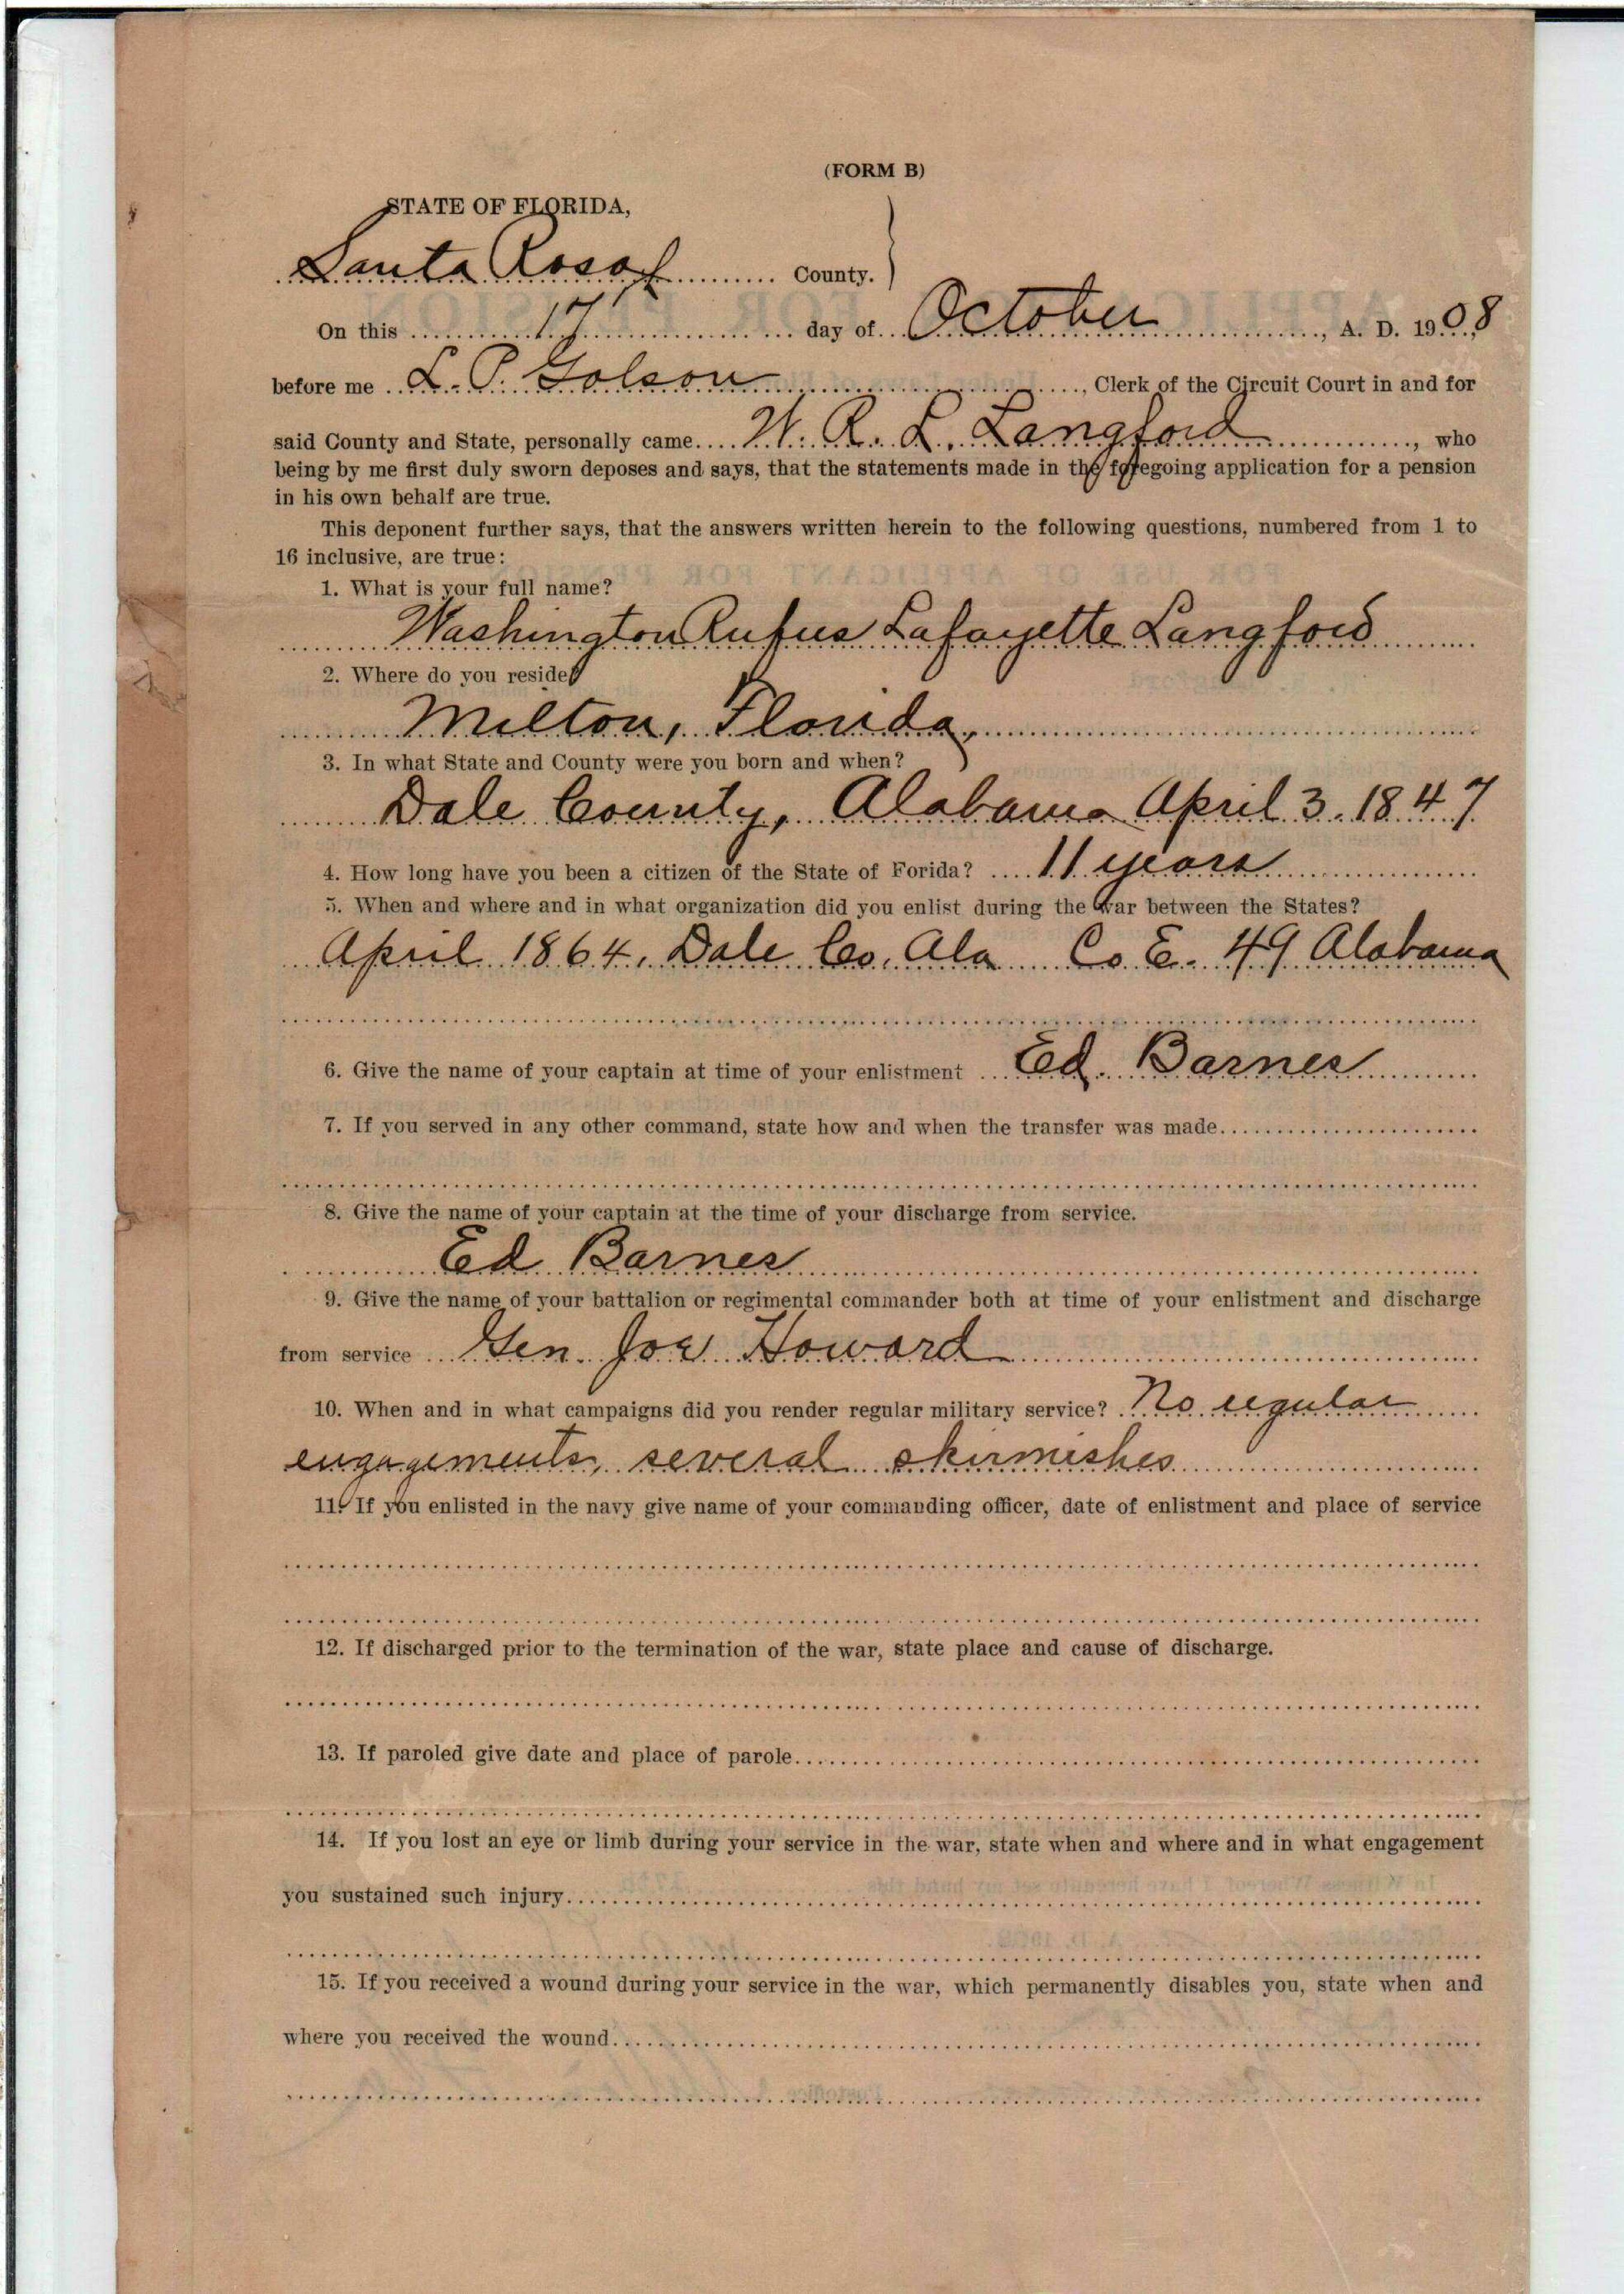 (FORM B)
STATE OF FLORIDA,
Santa Rosa County.
On this 17 day of October, A. D. 1908
before me L. P. Golson, Clerk of the Circuit Court in and for
said County and State, personally came W. R. L. Langford, who
being by me first duly sworn deposes and says, that the statements made in the foregoing application for a pension
in his own behalf are true.
This deponent further says, that the answers written herein to the following questions, numbered from 1 to
16 inclusive, are true:
1. What is your full name?
Washington Rufus Lafayette Langford
2. Where do you reside?
Milton, Florida,
3. In what State and County were you born and when?
Dale County, Alabama April 3. 1847
4. How long have you been a citizen of the State of Forida? 11 years
5. When and where and in what organization did you enlist during the war between the States?
April 1864, Dale Co. Ala Co E. 49 Alabama
6. Give the name of your captain at time of your enlistment Ed. Barnes
7. If you served in any other command, state how and when the transfer was made
8. Give the name of your captain at the time of your discharge from service.
Ed Barnes
9. Give the name of your battalion or regimental commander both at time of your enlistment and discharge
from service Gen. Joe Howard
10. When and in what campaigns did you render regular military service? No regular
engagements, several skirmishes
11. If you enlisted in the navy give name of your commanding officer, date of enlistment and place of service
12. If discharged prior to the termination of the war, state place and cause of discharge.
13. If paroled give date and place of parole
14. If you lost an eye or limb during your service in the war, state when and where and in what engagement
you sustained such injury
15. If you received a wound during your service in the war, which permanently disables you, state when and
where you received the wound